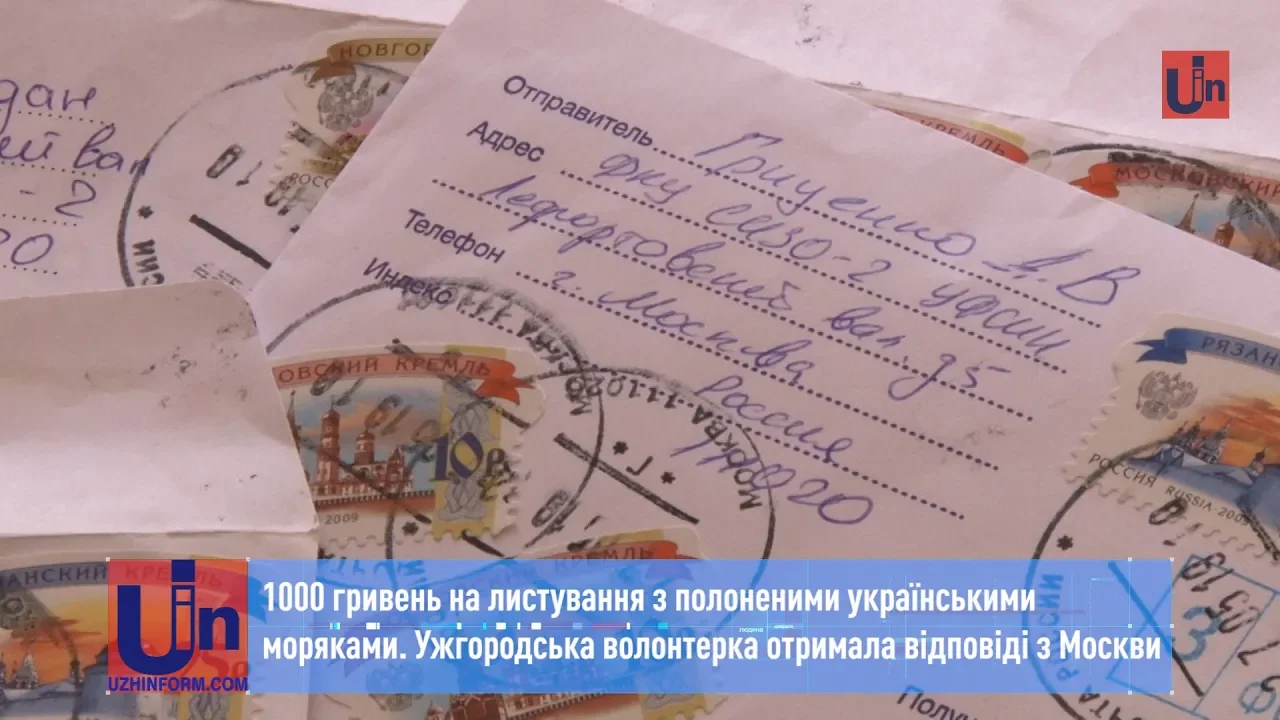 НОВГОР
Uin
дан
ей вал
- 2
20
Отправитель Гриценко А.В
Адрес ФКУ СИЗО-2 УФСИН
Лефортовский вал, д5
Телефон г. Москва
Индекс Россия
111020
КРЕМЛЬ
МОСКОВСКИЙ
РОСС
ОВСКИЙ КРЕМЛЬ
10р
2009
МОСКВА 111020
МОСКВА 111020
РЯЗАН
РОССИЯ RUSSIA 2009
АНСКИЙ КРЕМЛЬ
КРЕМЛЬ
3
Uin
UZHINFORM.COM
1000 гривень на листування з полоненими українськими
моряками. Ужгородська волонтерка отримала відповіді з Москви
Получ